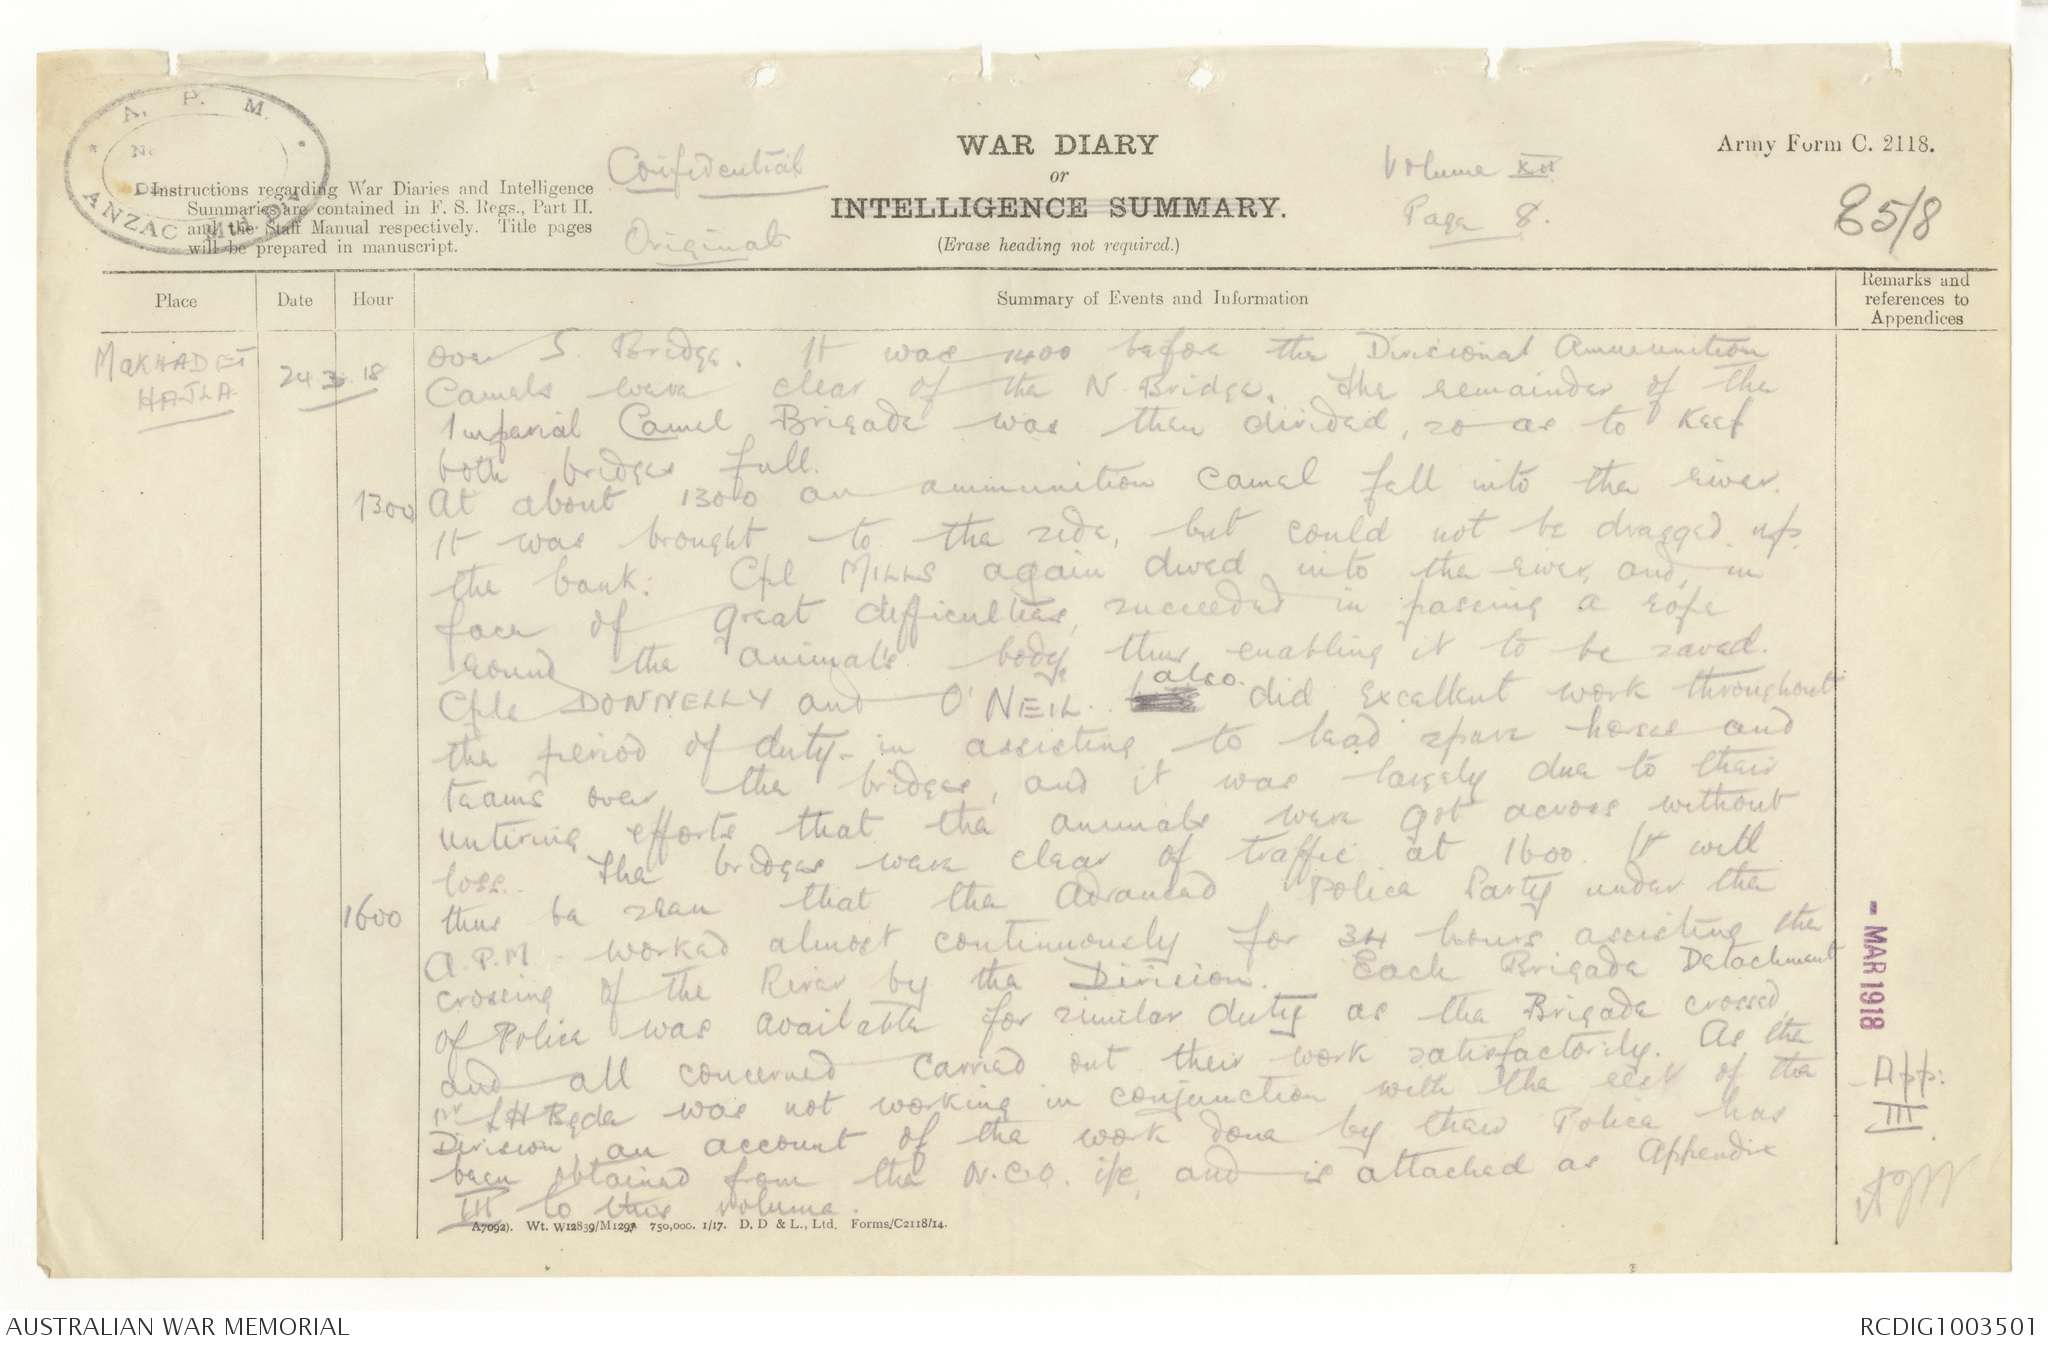 A. P. M.
ANZAC
Instructions regarding War Diaries and Intelligence
Summaries are contained in F. S. Regs., Part II.
and the Staff Manual respectively. Title pages
will be prepared in manuscript.
Confidential
Original
WAR DIARY
or
INTELLIGENCE SUMMARY.
(Erase heading not required.)
Volume
Page 8.
Army Form C. 2118.
85/8
Place
Date
Hour
Summary of Events and Information
Remarks and
references to
Appendices
MAKHADET
HAJLA
24 3. 18
over S. Bridge. It was 1400 before the Divisional Ammunition
Camels were clear of the N. Bridge. The remainder of the
Imperial Camel Brigade was then divided, so as to keep
both bridges full.
1300
At about 1300 an ammunition camel fell into the river.
It was brought to the side, but could not be dragged up
the bank: Cpl MILLS again dived into the river, and, in
face of great difficulties, succeeded in passing a rope
round the animal's body thus enabling it to be saved.
Cpls DONNELLY and O'NEIL also did excellent work throughout
the period of duty in assisting to lead spare horses and
teams over the bridges, and it was largely due to their
untiring efforts that the animals were got across without
loss. The bridges were clear of traffic at 1600. It will
1600
thus be seen that the Advanced Police Party under the
A.P.M. worked almost continuously for 34 hours assisting the
crossing of the River by the Division. Each Brigade Detachment
of Police was available for similar duty as the Brigade crossed,
and all concerned carried out their work satisfactorily. As the
LH Bgde was not working in conjunction with the rest of the
Division, an account of the work done by their Police has
been obtained from the N.C.O. i/c, and is attached as Appendix
III to this volume.
- MAR 1918
App:
III.
A7092). Wt. W12839/M1297 750,000. 1/17. D. D & L., Ltd. Forms/C2118/14.
AUSTRALIAN WAR MEMORIAL
RCDIG1003501